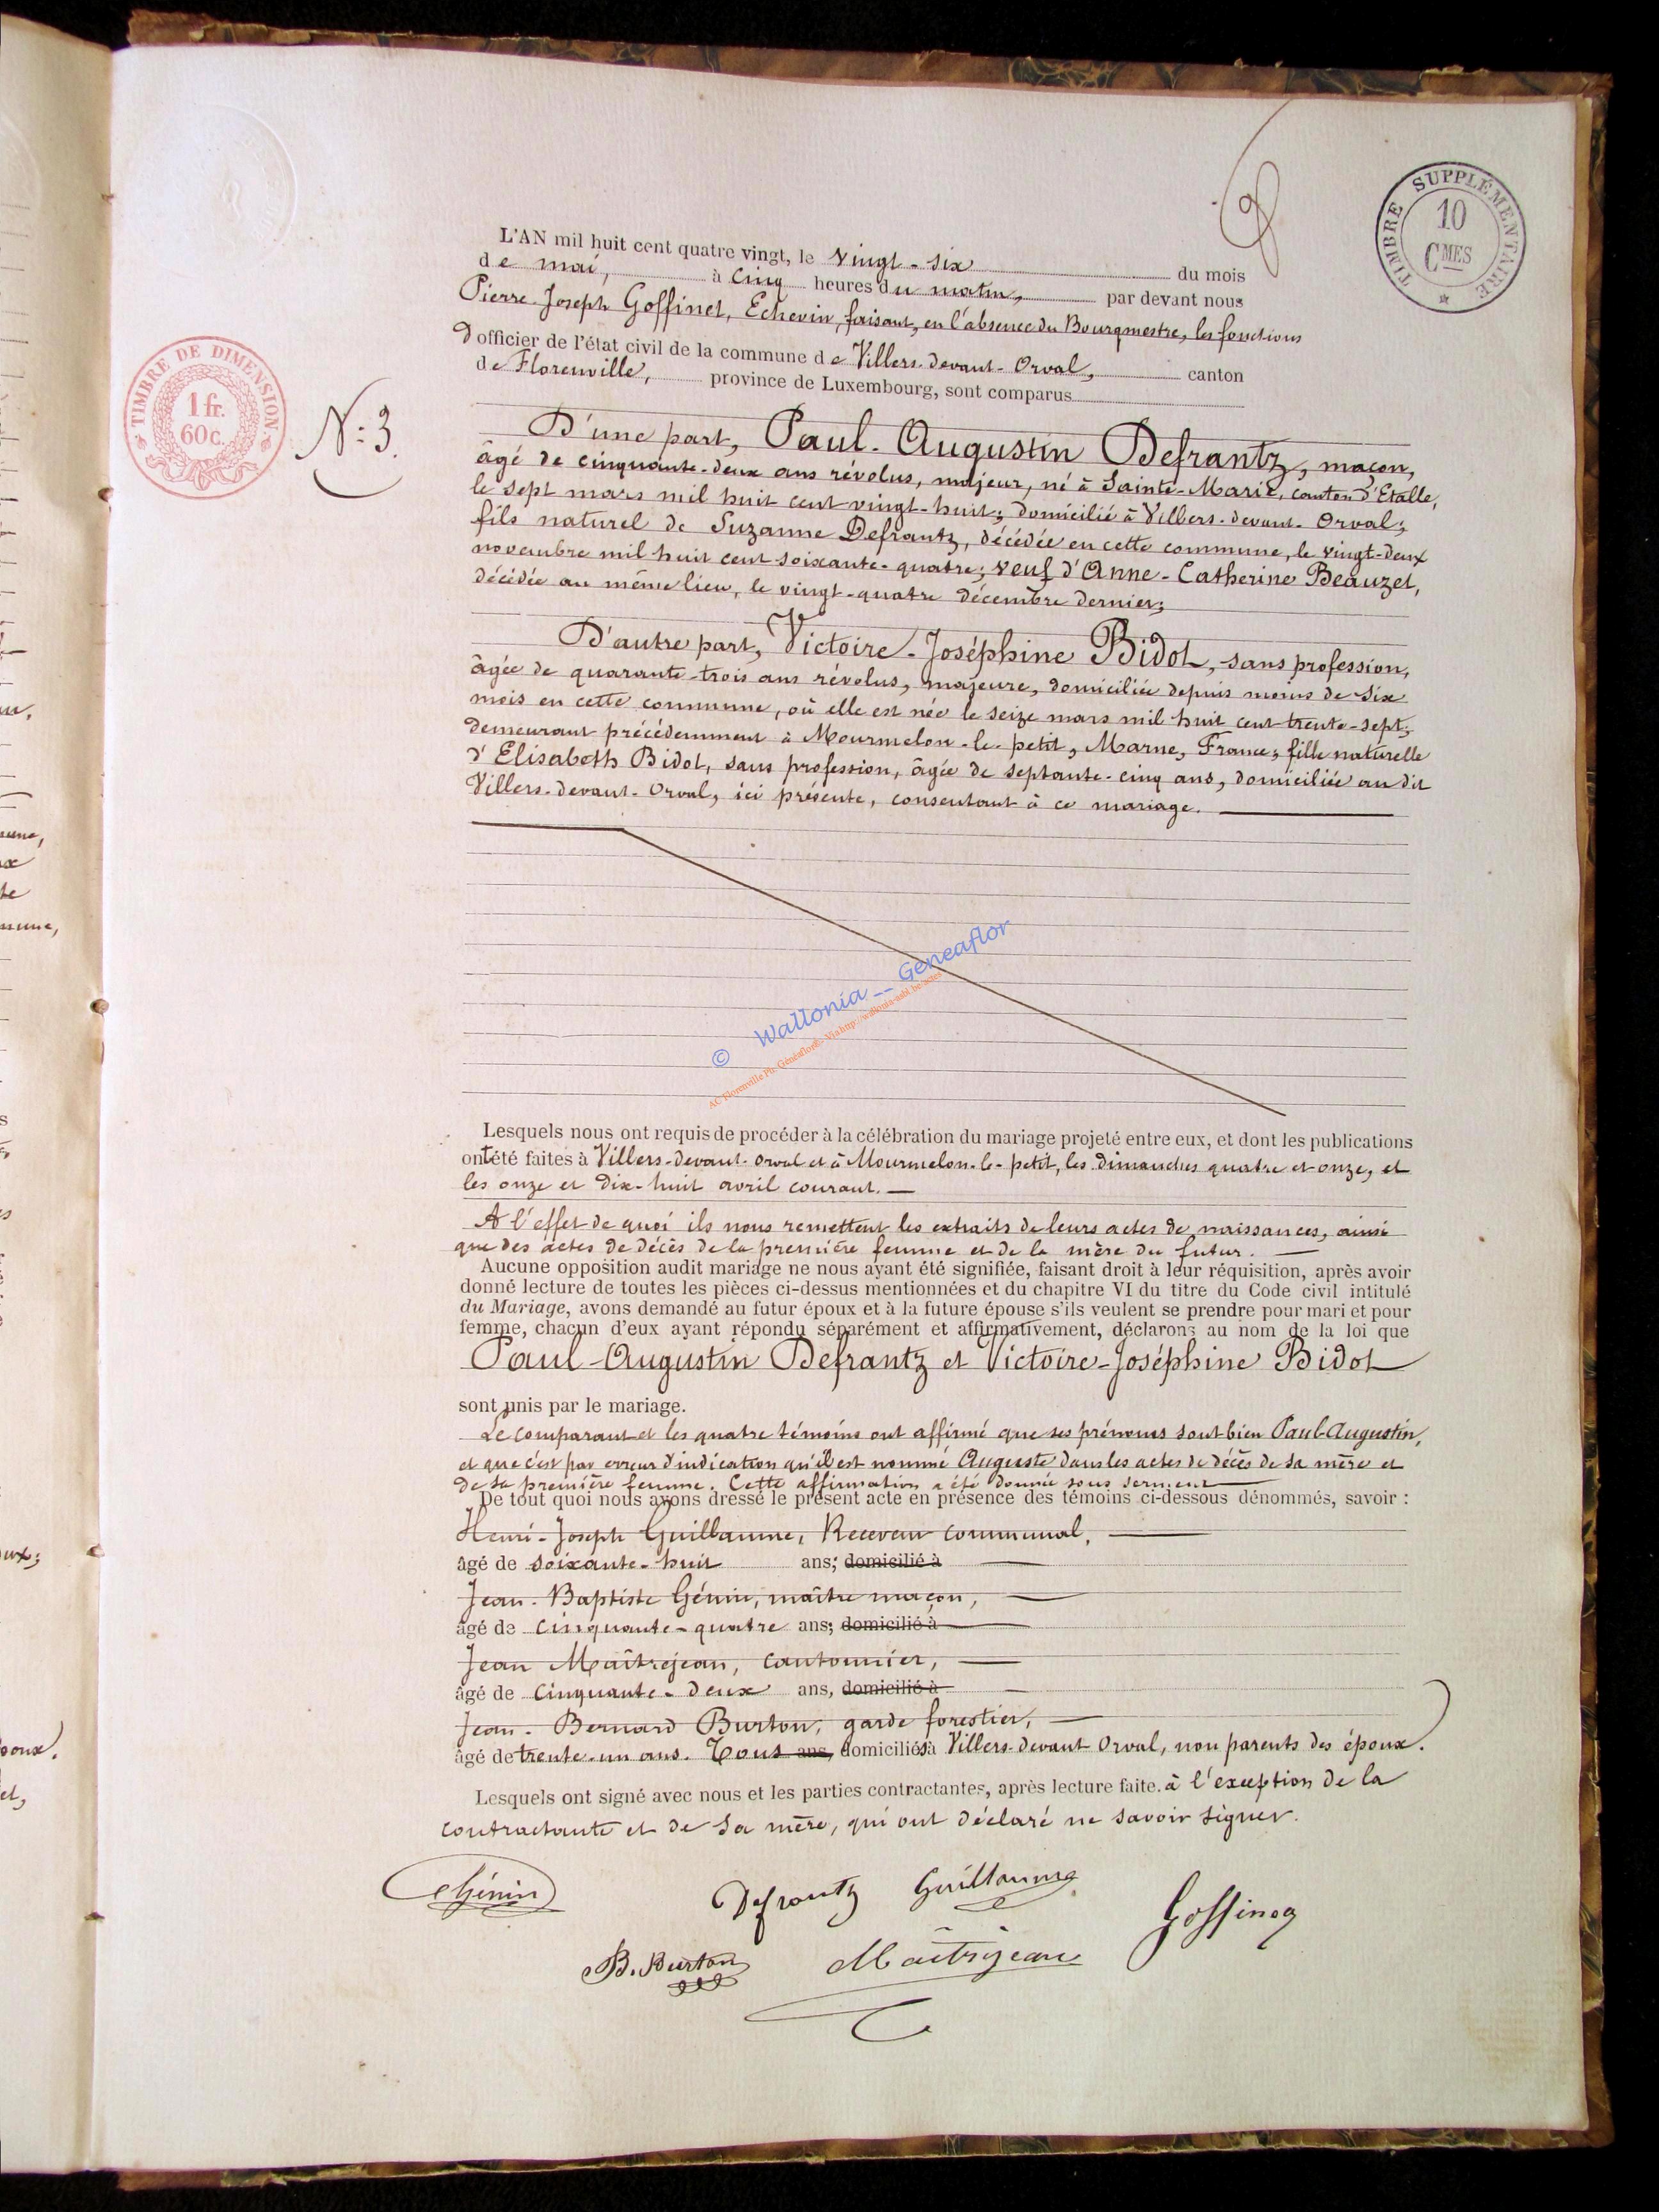 TIMBRE SUPPLÉMENTAIRE
10
CMES
L'AN mil huit cent quatre vingt, le vingt-six du mois
de mai, à cinq heures du matin, par devant nous
Pierre-Joseph Goffinet, Echevin, faisant, en l'absence du Bourgmestre, les fonctions
d'officier de l'état civil de la commune de Villers-devant-Orval, canton
de Florenville, province de Luxembourg, sont comparus
TIMBRE DE DIMENSION
1 fr.
60 c.
N: 3.
D'une part, Paul-Augustin Defrantz, maçon,
âgé de cinquante-deux ans révolus, majeur, né à Sainte-Marie, canton d'Etalle,
le sept mars mil huit cent vingt-huit; domicilié à Villers-devant-Orval;
fils naturel de Suzanne Defrantz, décédée en cette commune, le vingt-deux
novembre mil huit cent soixante-quatre; veuf d'Anne-Catherine Beauzet,
décédée au même lieu, le vingt-quatre décembre dernier;
D'autre part, Victoire-Joséphine Bidot, sans profession,
âgée de quarante-trois ans révolus, majeure, domiciliée depuis moins de six
mois en cette commune, où elle est née le seize mars mil huit cent trente-sept;
demeurant précédemment à Mourmelon-le-petit, Marne, France; fille naturelle
d'Elisabeth Bidot, sans profession, âgée de septante-cinq ans, domiciliée au dit
Villers-devant-Orval, ici présente, consentant à ce mariage.
© Wallonia -- Geneaflor
AC Florenville Ph. Généaflor© - Via http://wallonia-asbl.be/actes
Lesquels nous ont requis de procéder à la célébration du mariage projeté entre eux, et dont les publications
ont été faites à Villers-devant-Orval et à Mourmelon-le-petit, les dimanches quatre et onze, et
les onze et dix-huit avril courant.
A l'effet de quoi ils nous remettent les extraits de leurs actes de naissances, ainsi
que des actes de décès de la première femme et de la mère du futur.
Aucune opposition audit mariage ne nous ayant été signifiée, faisant droit à leur réquisition, après avoir
donné lecture de toutes les pièces ci-dessus mentionnées et du chapitre VI du titre du Code civil intitulé
du Mariage, avons demandé au futur époux et à la future épouse s'ils veulent se prendre pour mari et pour
femme, chacun d'eux ayant répondu séparément et affirmativement, déclarons au nom de la loi que
Paul-Augustin Defrantz et Victoire-Joséphine Bidot
sont unis par le mariage.
Le comparant et les quatre témoins ont affirmé que ses prénoms sont bien Paul-Augustin,
et que c'est par erreur d'indication qu'il est nommé Auguste dans les actes de décès de sa mère et
de sa première femme. Cette affirmation a été donnée sous serment
De tout quoi nous avons dressé le présent acte en présence des témoins ci-dessous dénommés, savoir :
Henri-Joseph Guillaume, Receveur communal,
âgé de soixante-huit ans; domicilié à
Jean-Baptiste Génin, maître maçon,
âgé de cinquante-quatre ans; domicilié à
Jean Maîtrejean, cantonnier,
âgé de cinquante-deux ans, domicilié à
Jean-Bernard Burton, garde forestier,
âgé de trente-un ans. Tous ans, domiciliés à Villers-devant-Orval, non parents des époux.
Lesquels ont signé avec nous et les parties contractantes, après lecture faite. à l'exception de la
contractante et de sa mère, qui ont déclaré ne savoir signer.
Génin
Defrantz
Guillaume
Goffinet
B. Burton
Maîtrejean